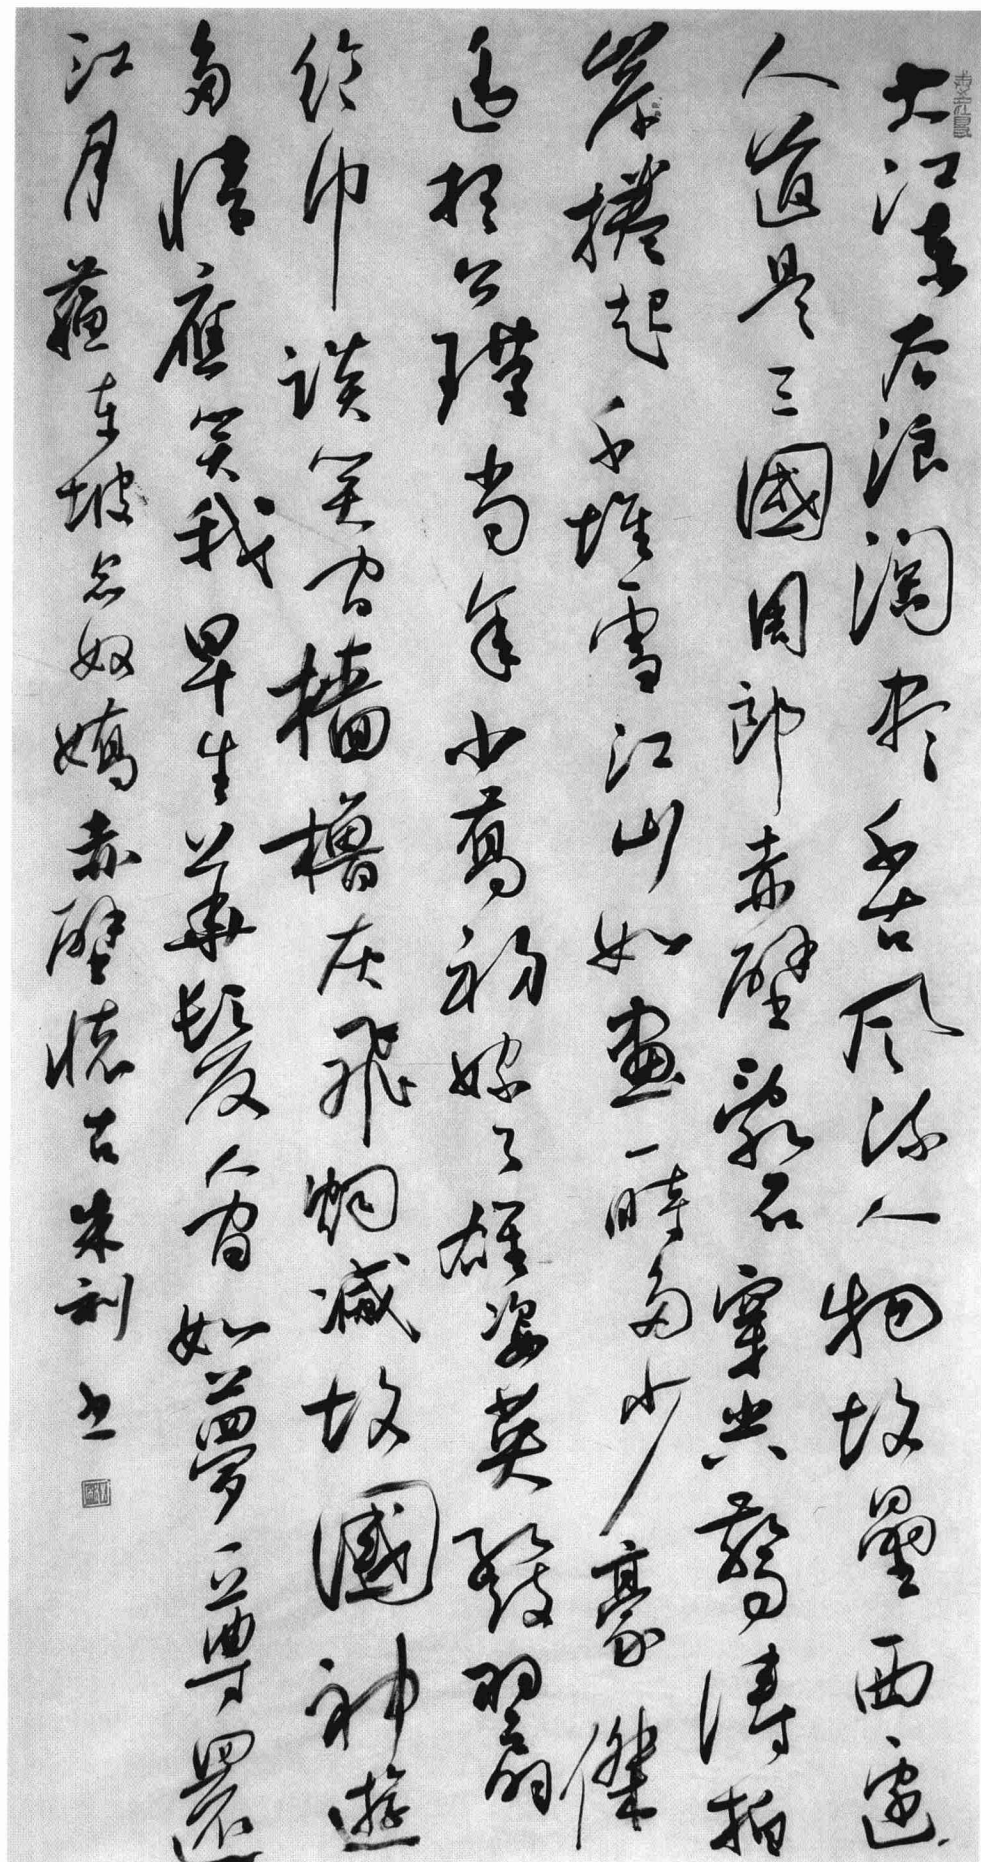 大江東去浪淘盡千古風流人物故壘西邊
人道是三國周郎赤壁亂石穿空驚濤拍
岸捲起千堆雪江山如畫一時多少豪傑
遙想公瑾當年小喬初嫁了雄姿英發羽扇
綸巾談笑間檣櫓灰飛煙滅故國神遊
多情應笑我早生華髮人間如夢一尊還
江月蘇東坡念奴嬌赤壁懷古朱利書